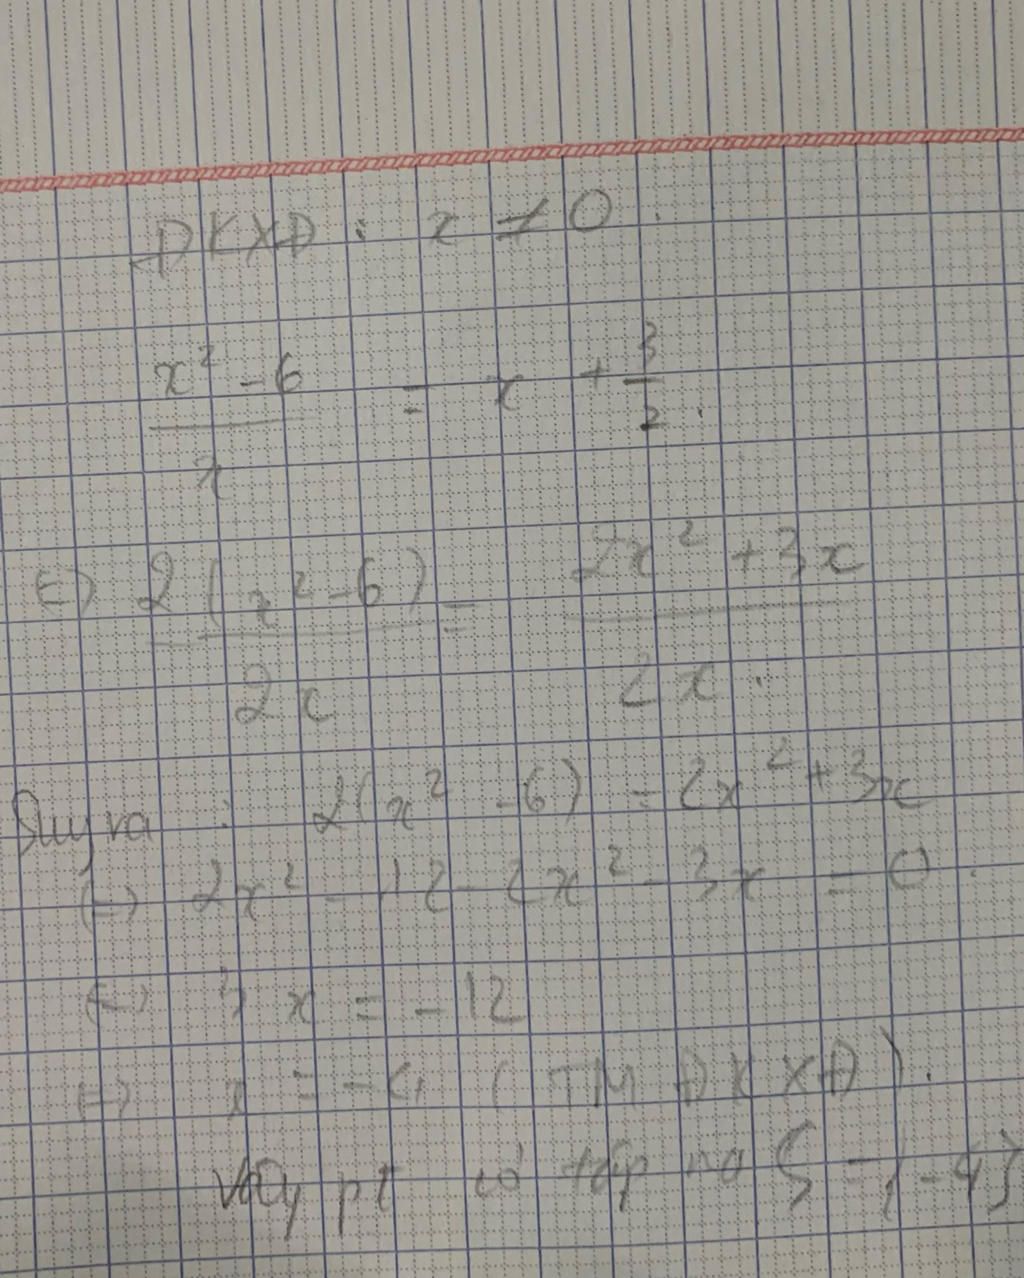 ĐKXĐ : x ≠ 0.
x² - 6 / x = x + 3/2.
(=) 2(x² - 6) / 2x = 2x² + 3x / 2x.
Suy ra : 2(x² - 6) = 2x² + 3x
(=) 2x² - 12 - 2x² - 3x = 0.
(=) 3x = -12
(=) x = -4 (TM ĐKXĐ).
Vậy pt có tập no S = {-4}